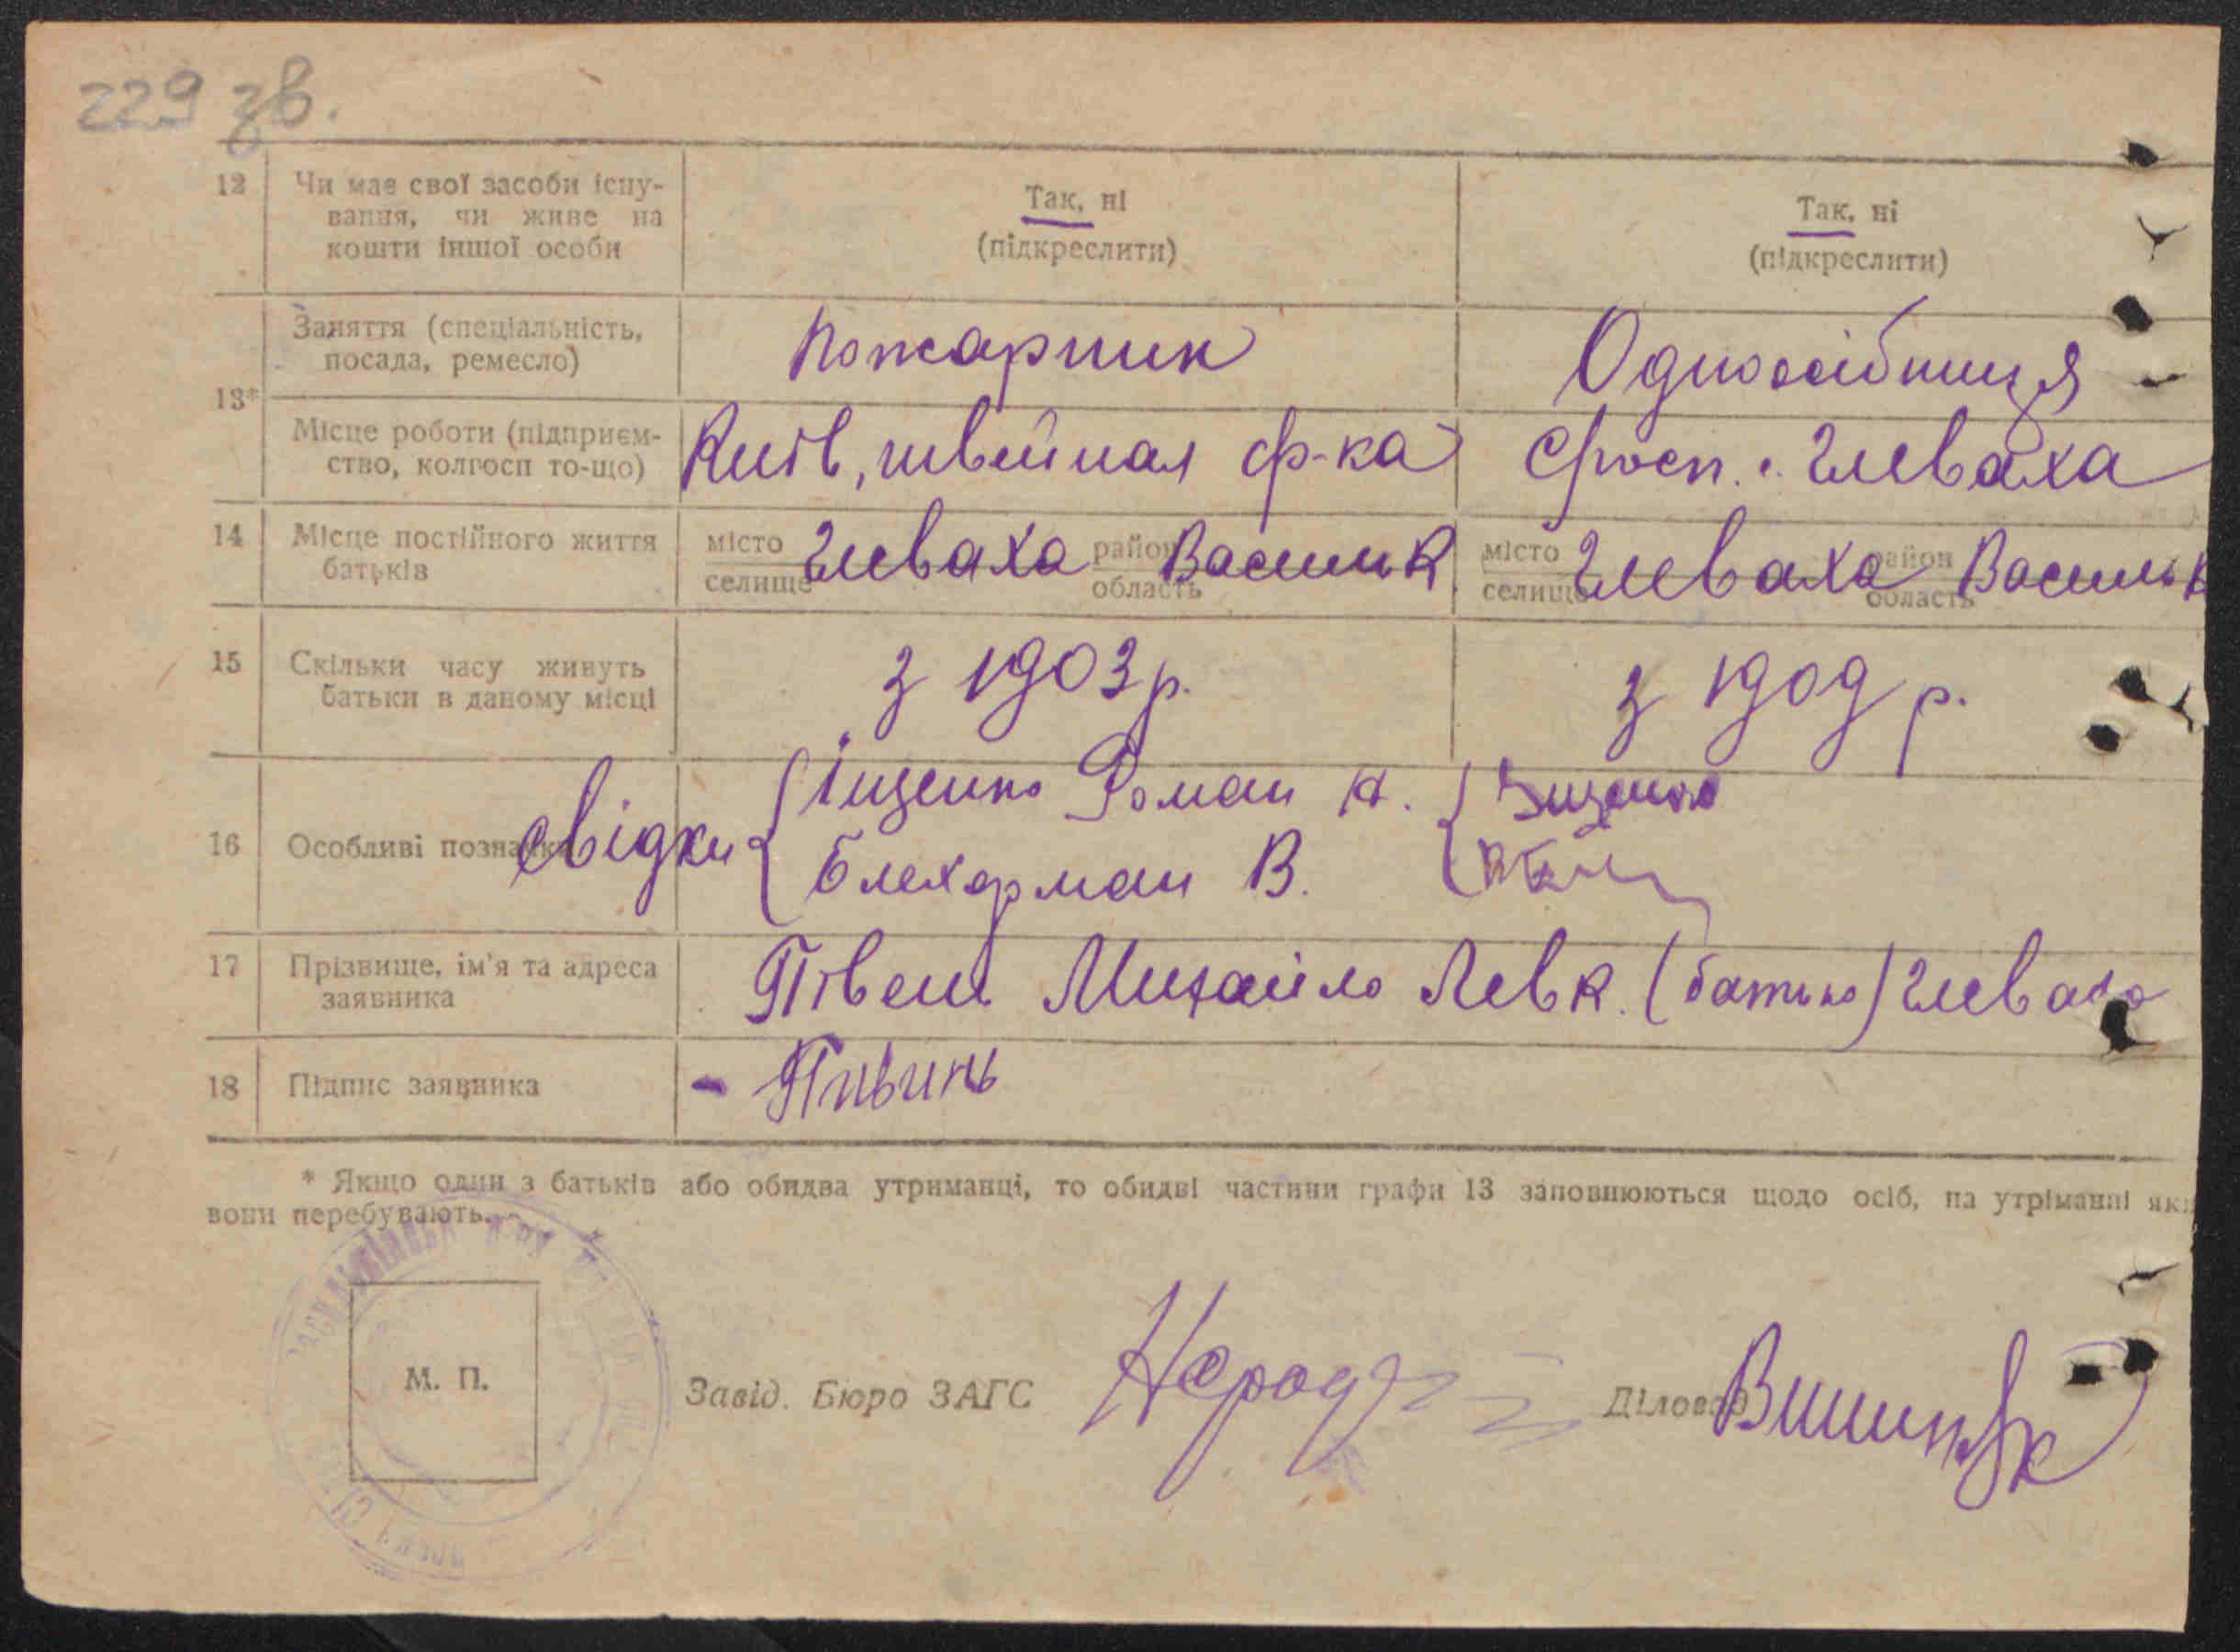 229 зв.
12 Чи має свої засоби існу-
вання, чи живе на
кошти іншої особи
Так, ні
(підкреслити)
Так, ні
(підкреслити)
13*
Заняття (спеціальність,
посада, ремесло)
Пожарник
Одноосібниця
Місце роботи (підприєм-
ство, колгосп то-що)
Київ, швейная ф-ка
с. Глеваха
14 Місце постійного життя
батьків
місто
селище
Глеваха
район
область
Васильк
місто
селище
Глеваха
район
область
Васильк
15 Скільки часу живуть
батьки в даному місці
з 1903 р.
з 1909 р.
16 Особливі познаки
свідки
Іщенко Роман К.
Іщенко
Блехарман В.
17 Прізвище, ім'я та адреса
заявника
Півень Михайло Левк. (батько) Глеваха
18 Підпис заявника
- Пивинь
* Якщо один з батьків або обидва утриманці, то обидві частини графи 13 заповнюються щодо осіб, на утріманні яки
вони перебувають.
М. П.
Завід. Бюро ЗАГС
Діловод